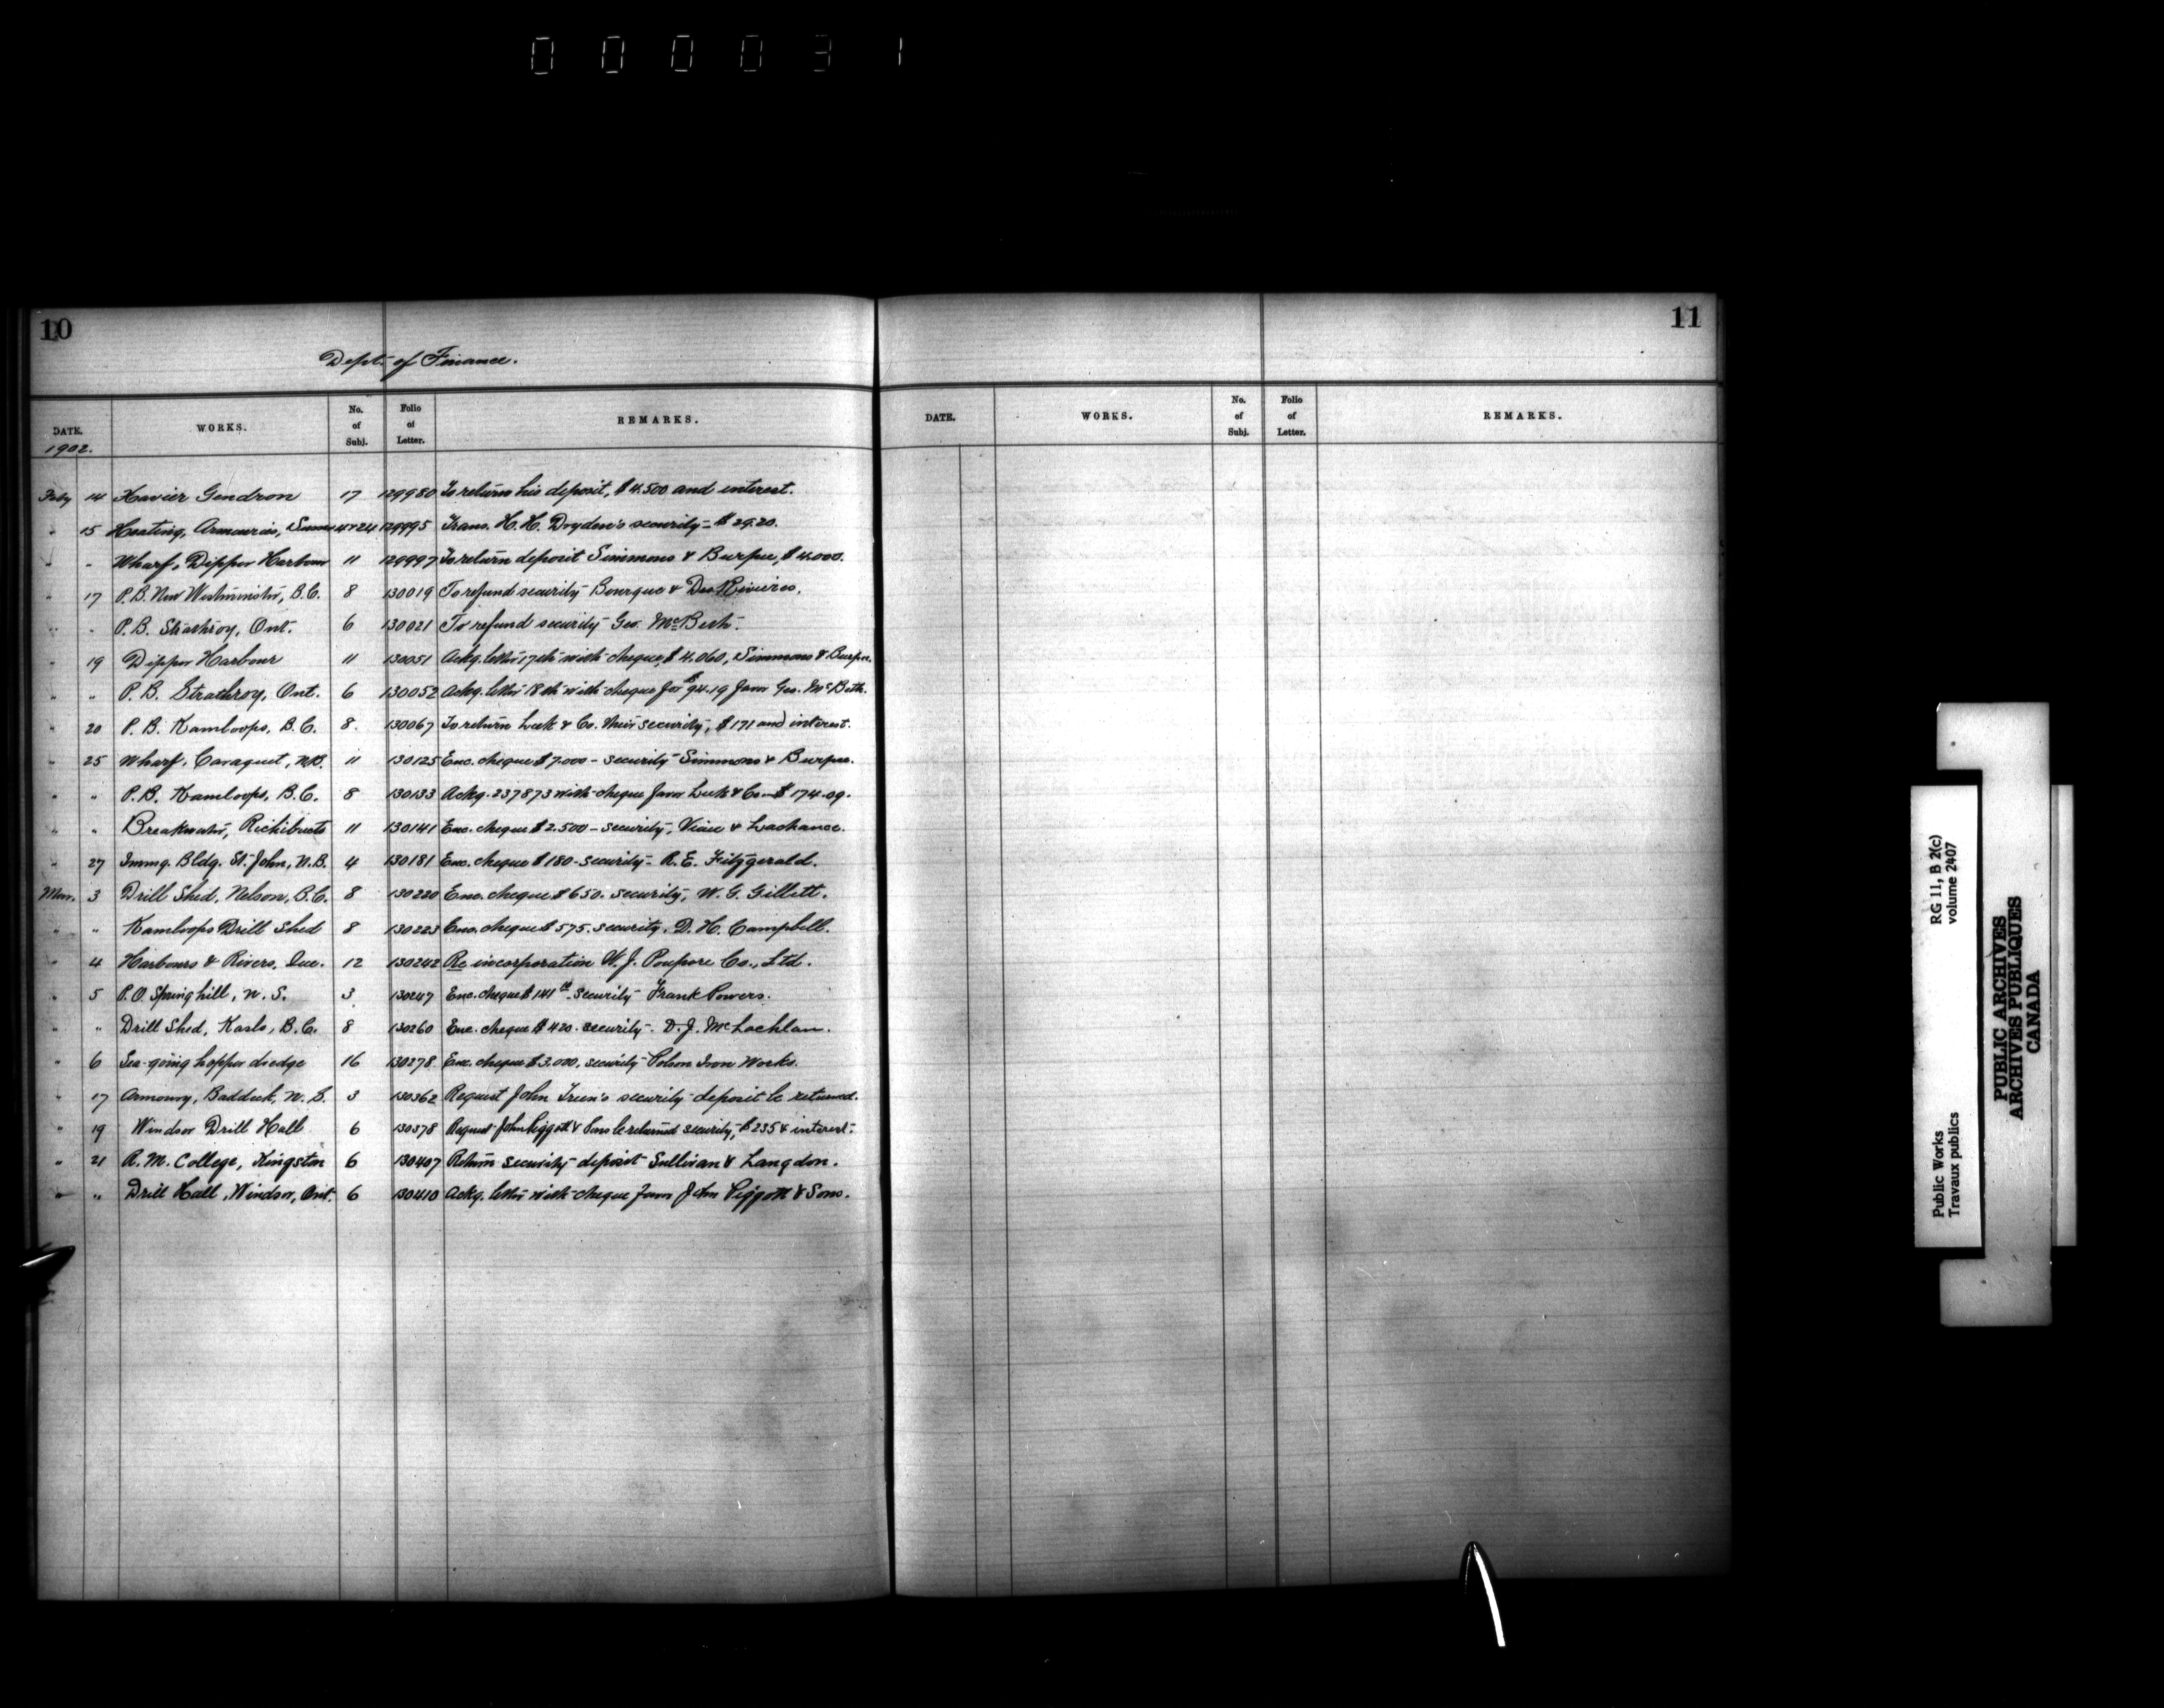 000031
10
Dept. of Finance.
DATE. WORKS. No. of Subj. Folio of Letter. REMARKS.
1902.
Feby 14 Xavier Gendron 17 129980 To return his deposit, $4.500 and interest.
" 15 Heating, Armouries, 4 & 24 129995 Trans. H. H. Dryden's security - $29.20.
" " Wharf, Dipper Harbour 11 129997 To return deposit Simmons & Burpee, $4.000.
" 17 P.B. New Westminster, B.C. 8 130019 To refund security Bourque & Des Rivieres.
" " P.B. Strathroy, Ont. 6 130021 To refund security Geo. McBeth.
" 19 Dipper Harbour 11 130051 Ackg. letter 17th with cheque, $4.060, Simmons & Burpee.
" " P.B. Strathroy, Ont. 6 130052 Ackg. letter 18th with cheque for $94.19 favor Geo. McBeth.
" 20 P.B. Kamloops, B.C. 8. 130067 To return Luck & Co. their security, $171 and interest.
" 25 Wharf, Caraquet, N.B. 11 130125 Enc. cheque $7.000 - security Simmons & Burpee.
" " P.B. Kamloops, B.C. 8 130133 Ackg. 237873 with cheque favor Luck & Co - $174.09.
" " Breakwater, Richibucto 11 130141 Enc. cheque $2.500 - security, Viau & Lachance.
" 27 Immg. Bldg. St. John, N.B. 4 130181 Enc. cheque $180 - security - R. E. Fitzgerald.
Mar. 3 Drill Shed, Nelson, B.C. 8 130220 Enc. cheque $650. security, W. G. Gillett.
" " Kamloops Drill Shed 8 130223 Enc. cheque $575. security, D. H. Campbell.
" 4 Harbours & Rivers, Que. 12 130242 Re incorporation W. J. Poupore Co., Ltd.
" 5 P.O. Springhill, N.S. 3 130247 Enc. cheque $141 security Frank Powers.
" " Drill Shed, Kaslo, B.C. 8 130260 Enc. cheque $420. security. D. J. McLachlan.
" 6 Sea-going hopper dredge 16 130278 Enc. cheque $3.000, security Polson Iron Works.
" 17 Armoury, Baddeck, N.S. 3 130362 Request John Treen's security deposit be returned.
" 19 Windsor Drill Hall 6 130378 Request John Piggott & Sons be returned security, $235 & interest.
" 21 R. M. College, Kingston 6 130407 Return security deposit Sullivan & Langdon.
" " Drill Hall, Windsor, Ont. 6 130410 Ackg. letter with cheque favor John Piggott & Sons.
11
DATE. WORKS. No. of Subj. Folio of Letter. REMARKS.
RG 11, B 2(c)
volume 2407
Public Works
Travaux publics
PUBLIC ARCHIVES
ARCHIVES PUBLIQUES
CANADA